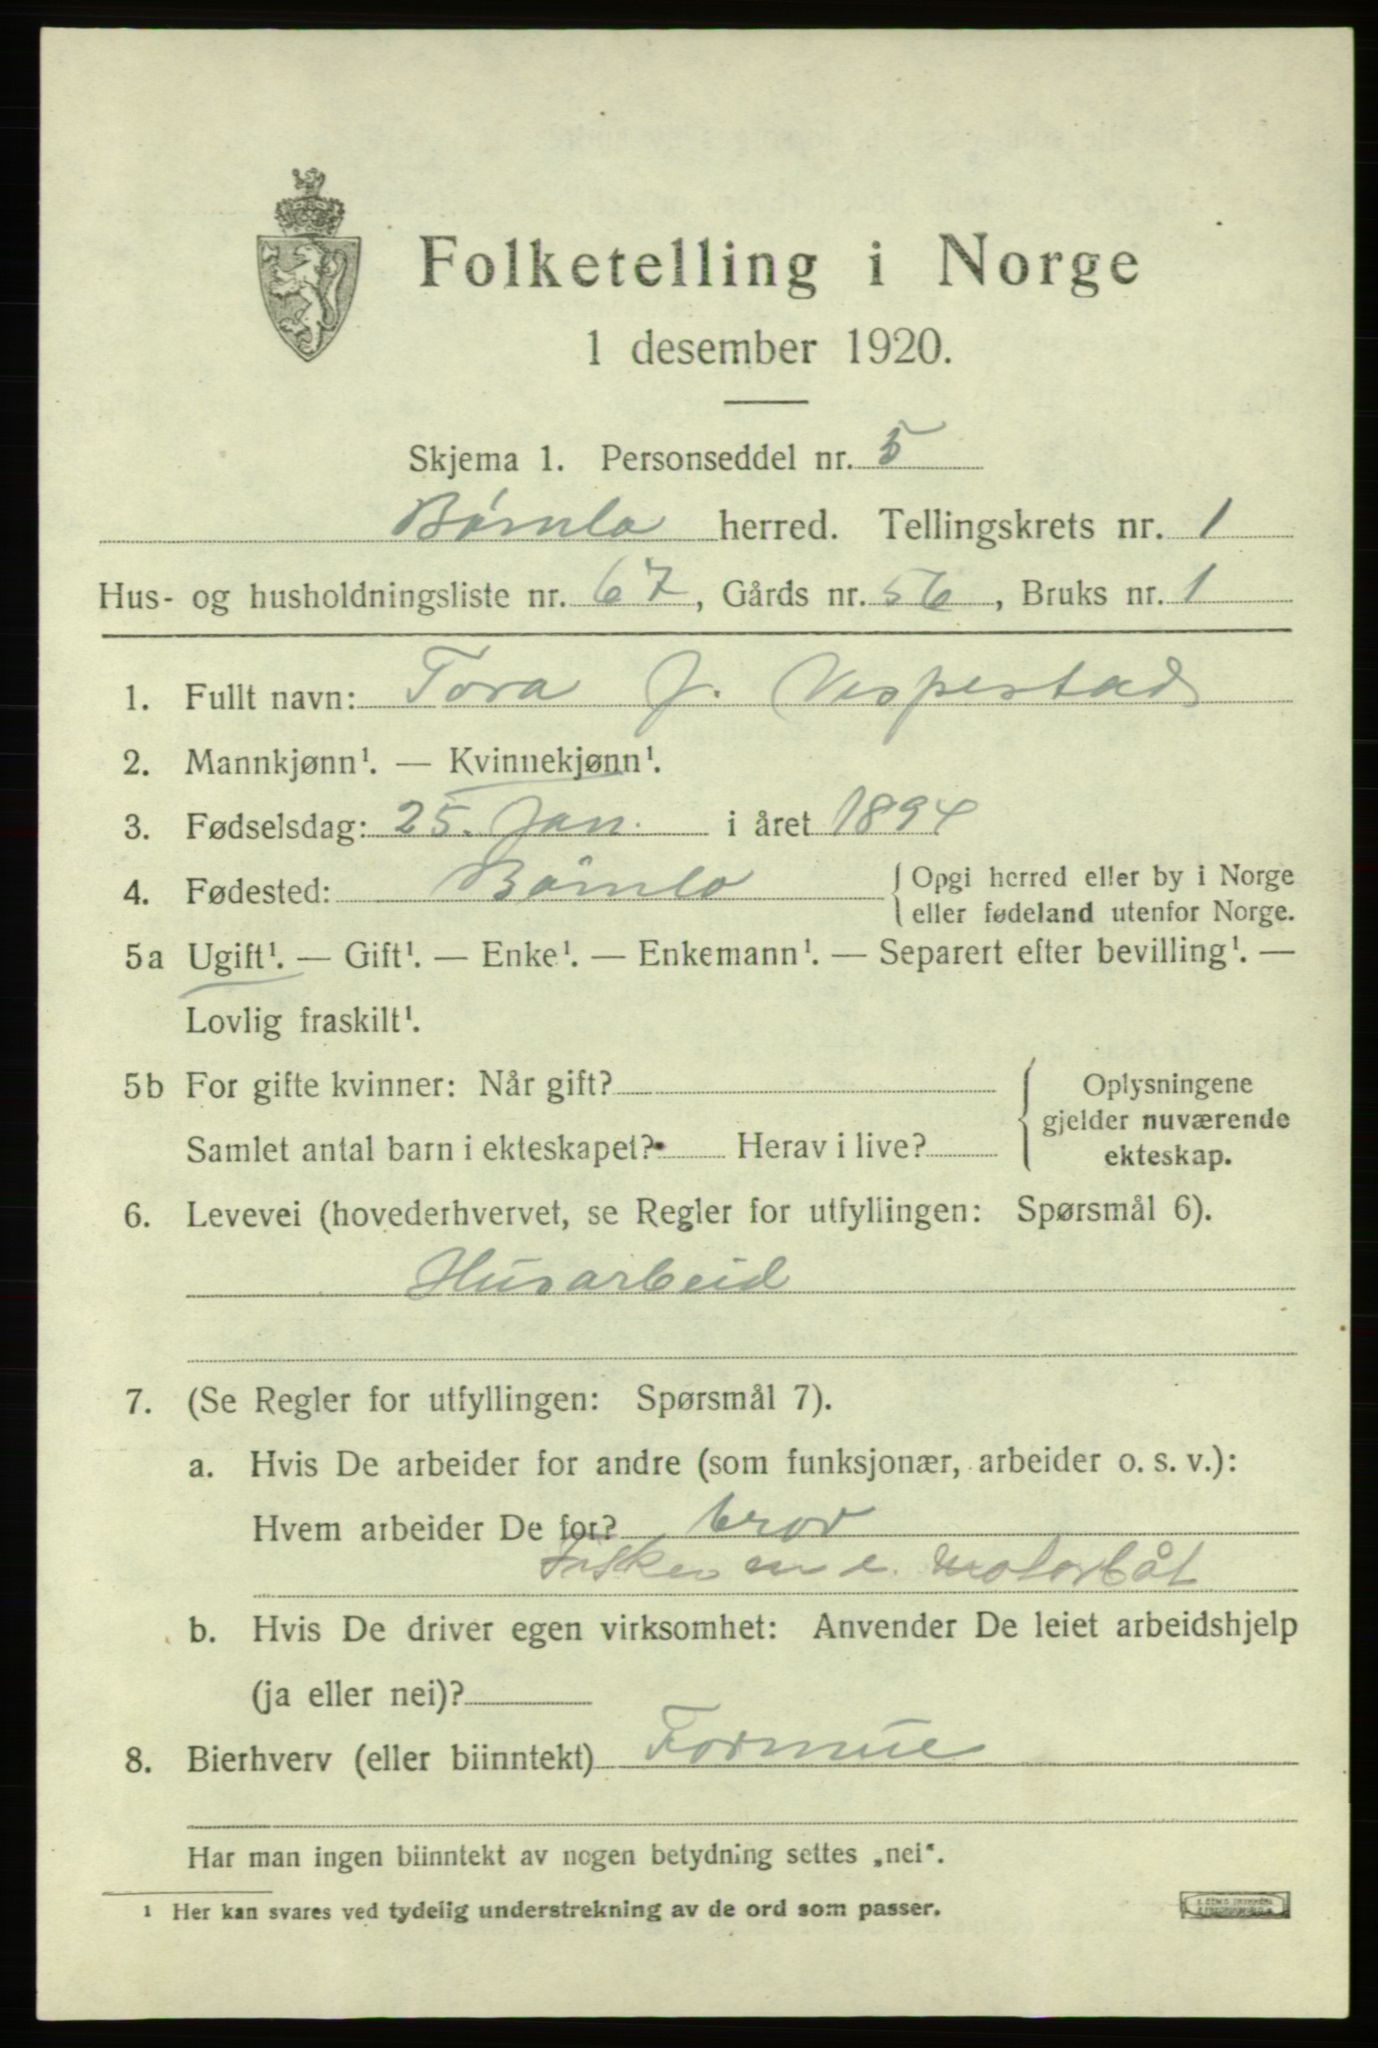 Folketelling i Norge
1 desember 1920.
Skjema 1. Personseddel nr. 5
Børnlo herred. Tellingskrets nr. 1
Hus- og husholdningsliste nr. 67, Gårds nr. 56, Bruks nr. 1
1. Fullt navn: Tora J. Vespestad
2. Mannkjønn¹. — Kvinnekjønn¹.
3. Fødselsdag: 25. Jan. i året 1894
4. Fødested: Bømlo { Opgi herred eller by i Norge
eller fødeland utenfor Norge.
5a Ugift¹. — Gift¹. — Enke¹. — Enkemann¹. — Separert efter bevilling¹. —
Lovlig fraskilt¹.
5b For gifte kvinner: Når gift? { Oplysningene
gjelder nuværende
Samlet antal barn i ekteskapet? Herav i live? ekteskap.
6. Levevei (hovederhvervet, se Regler for utfyllingen: Spørsmål 6).
Husarbeid
7. (Se Regler for utfyllingen: Spørsmål 7).
a. Hvis De arbeider for andre (som funksjonær, arbeider o. s. v.):
Hvem arbeider De for? bror
Fisker m e. Motorbåt
b. Hvis De driver egen virksomhet: Anvender De leiet arbeidshjelp
(ja eller nei)?
8. Bierhverv (eller biinntekt) Formue
Har man ingen biinntekt av nogen betydning settes „nei“.
¹ Her kan svares ved tydelig understrekning av de ord som passer.